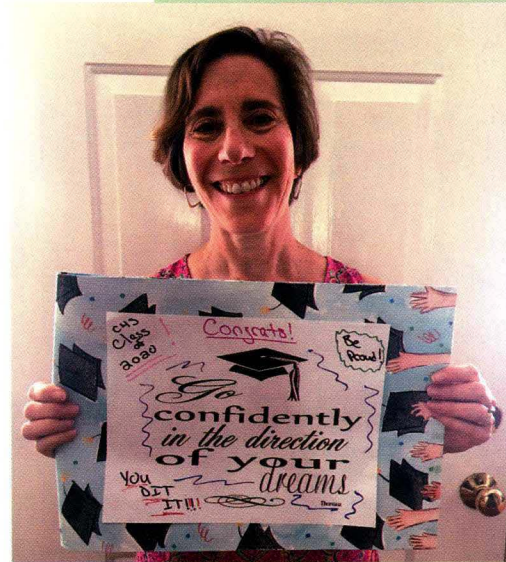 CHS
Class
of
2020!
Congrats!
Be
Proud!
Go
confidently
in the direction
of your
dreams
Thoreau
YOU
DIT
IT!!!!